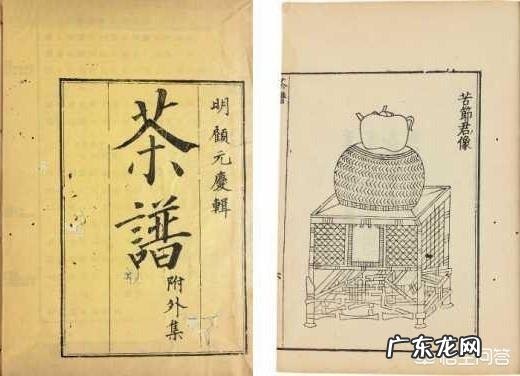 明顧元慶輯
茶譜
附外集
苦節君像
茶譜
广东龙网